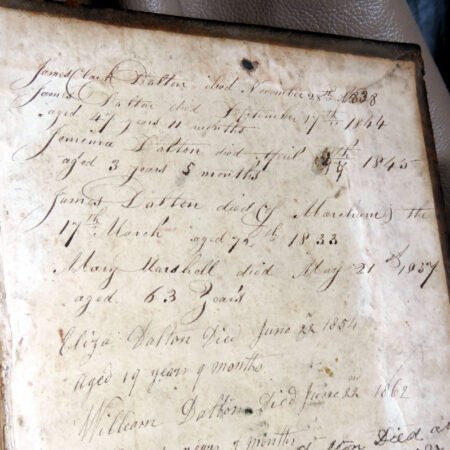 James Clark Dalton died November 28th 1838
James Dalton died September 17th 1844
aged 47 years 11 months
Jemima Dalton died April 1845
aged 3 years 5 months
James Dalton died (of Marcham) the
17th March aged 72 1833
Mary Marshell died May 21st 1857
aged 63 Years
Eliza Dalton Died June 22 1854
Aged 19 years 9 months
William Dalton Died June 22 1862
years 9 months
Died at